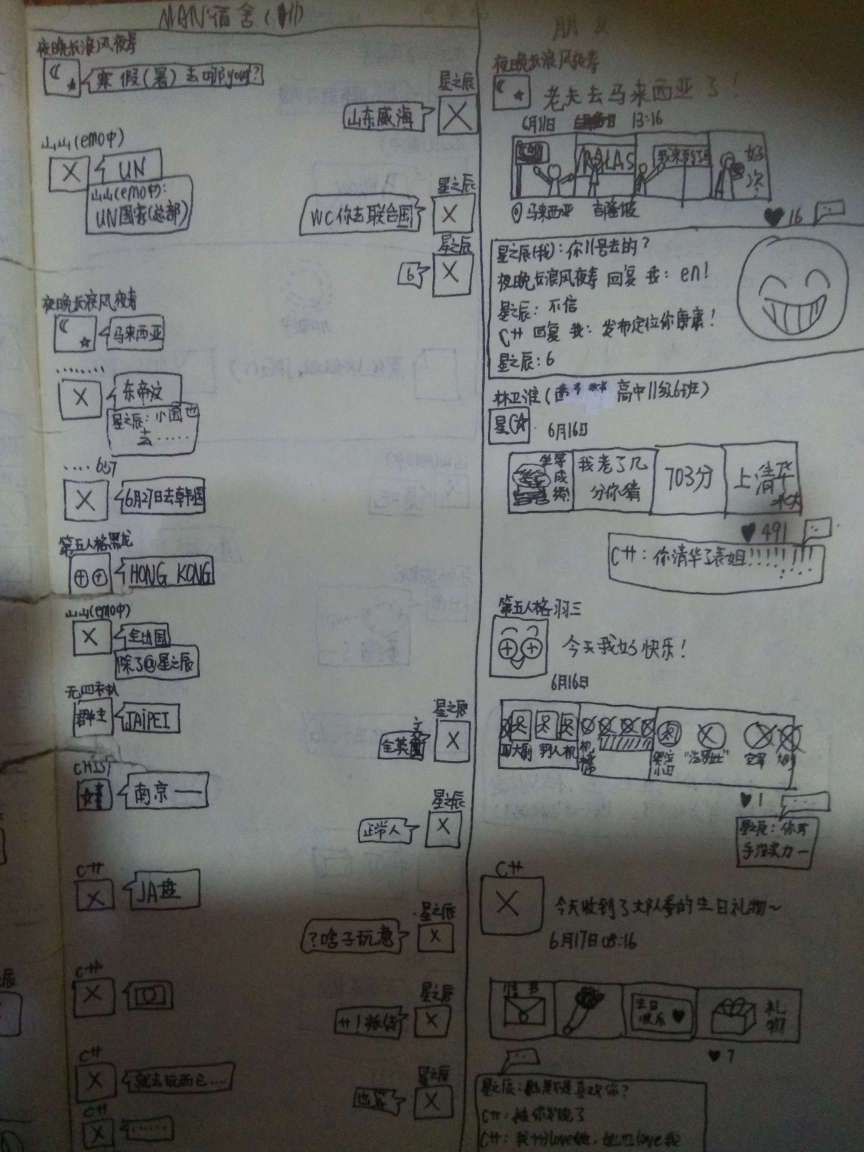 MAN宿舍(11)
夜晚长浪风夜寿
寒假(署)去哪you?
星之辰
山东威海
山山(emo中)
UN
山山(emo中):
UN国客(总部)
星之辰
WC你去联合国
星之辰
6
夜晚长浪风夜寿
马来西亚
........
东帝汶
星之辰:小国也
去......
....657
6月27日去韩国
第五人格黑龙
HONG KONG
山山(emo中)
全出国
除了@星之辰
JAiPEI
星之辰
全英文
南京一
星之辰
正常人
C艹
JA盘
星之辰
?啥子玩意
C艹
星之辰
C艹
就去玩而已....
星之辰
C艹
......
夜晚长浪风夜寿
老夫去马来西亚了!
6月11日 13:16
好次!
马来西亚 吉隆坡
16
星之辰(我):你11号去的?
夜晚长浪风夜寿 回复 我:en!
星之辰:不信
C艹 回复 我:发布定位你康康!
星之辰:6
林卫淮( 高中11级6班)
6月16日
成绩!
我考了几
分你猜
703分
上清华
491
C艹:你清华了表姐!!!!!!!!
第五人格羽三
今天我好快乐!
6月16日
1
星之辰:你对
手没实力一
C艹
今天收到了大队委的生日礼物~
6月17日 08:16
情书
生日
快乐
礼物
7
星之辰:她是不是喜欢你?
C艹:被你发现了
C艹:我十分love她,她也love我